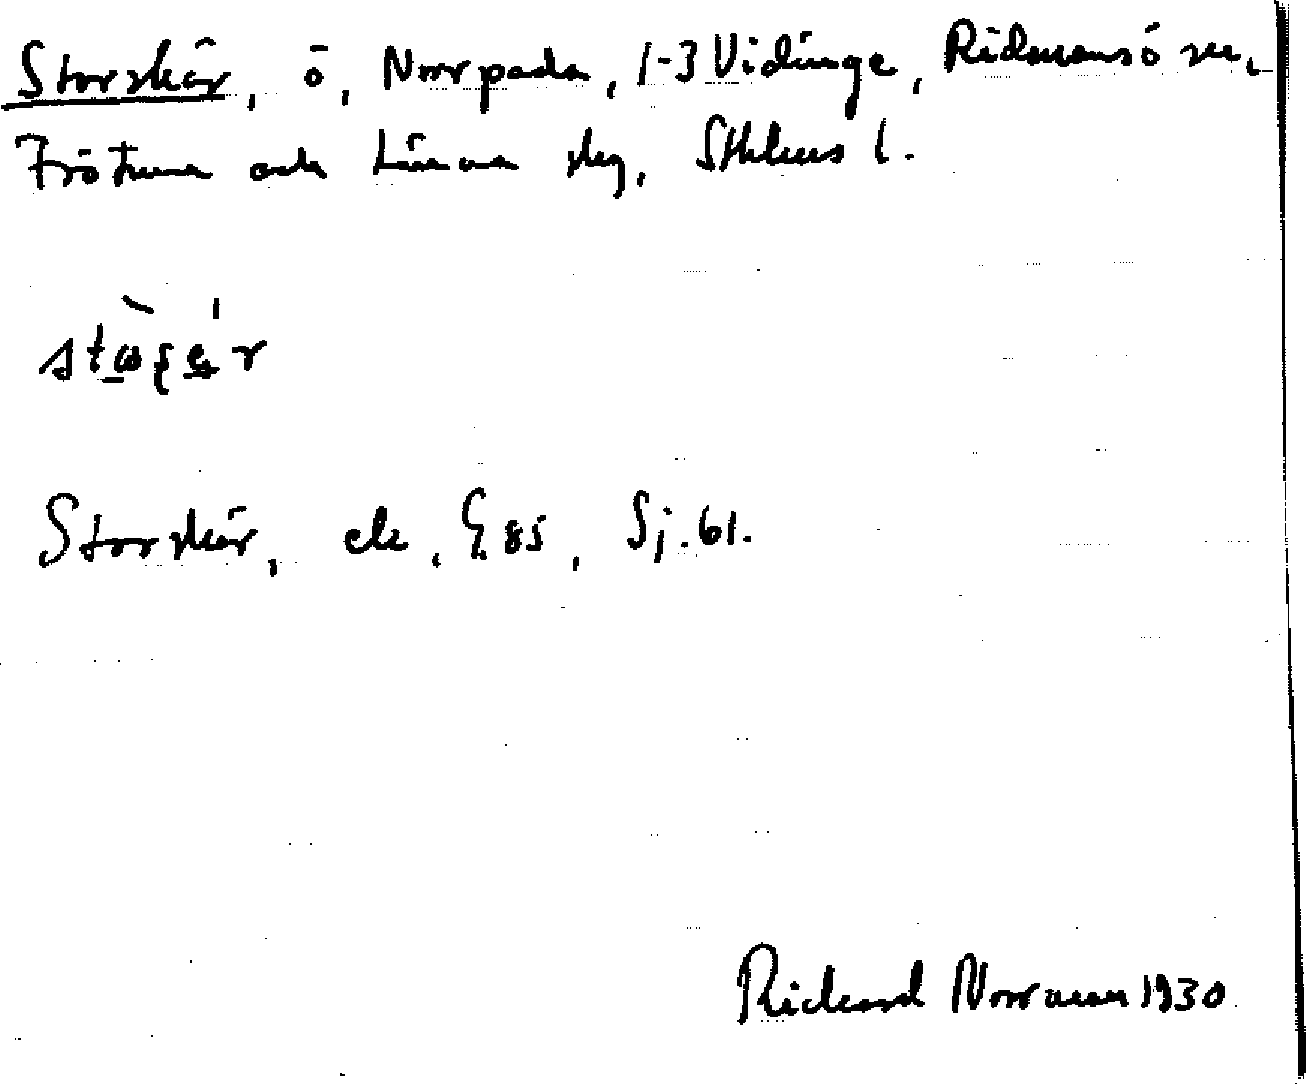 Storskär, ö, Norrpada, 1-3 Vidinge, Rådmansö sn,
Frötuna och Länna skg, Sthlms l.
Storskär, ek, G. 85, Sj. 61.
Rickard Norrman 1930